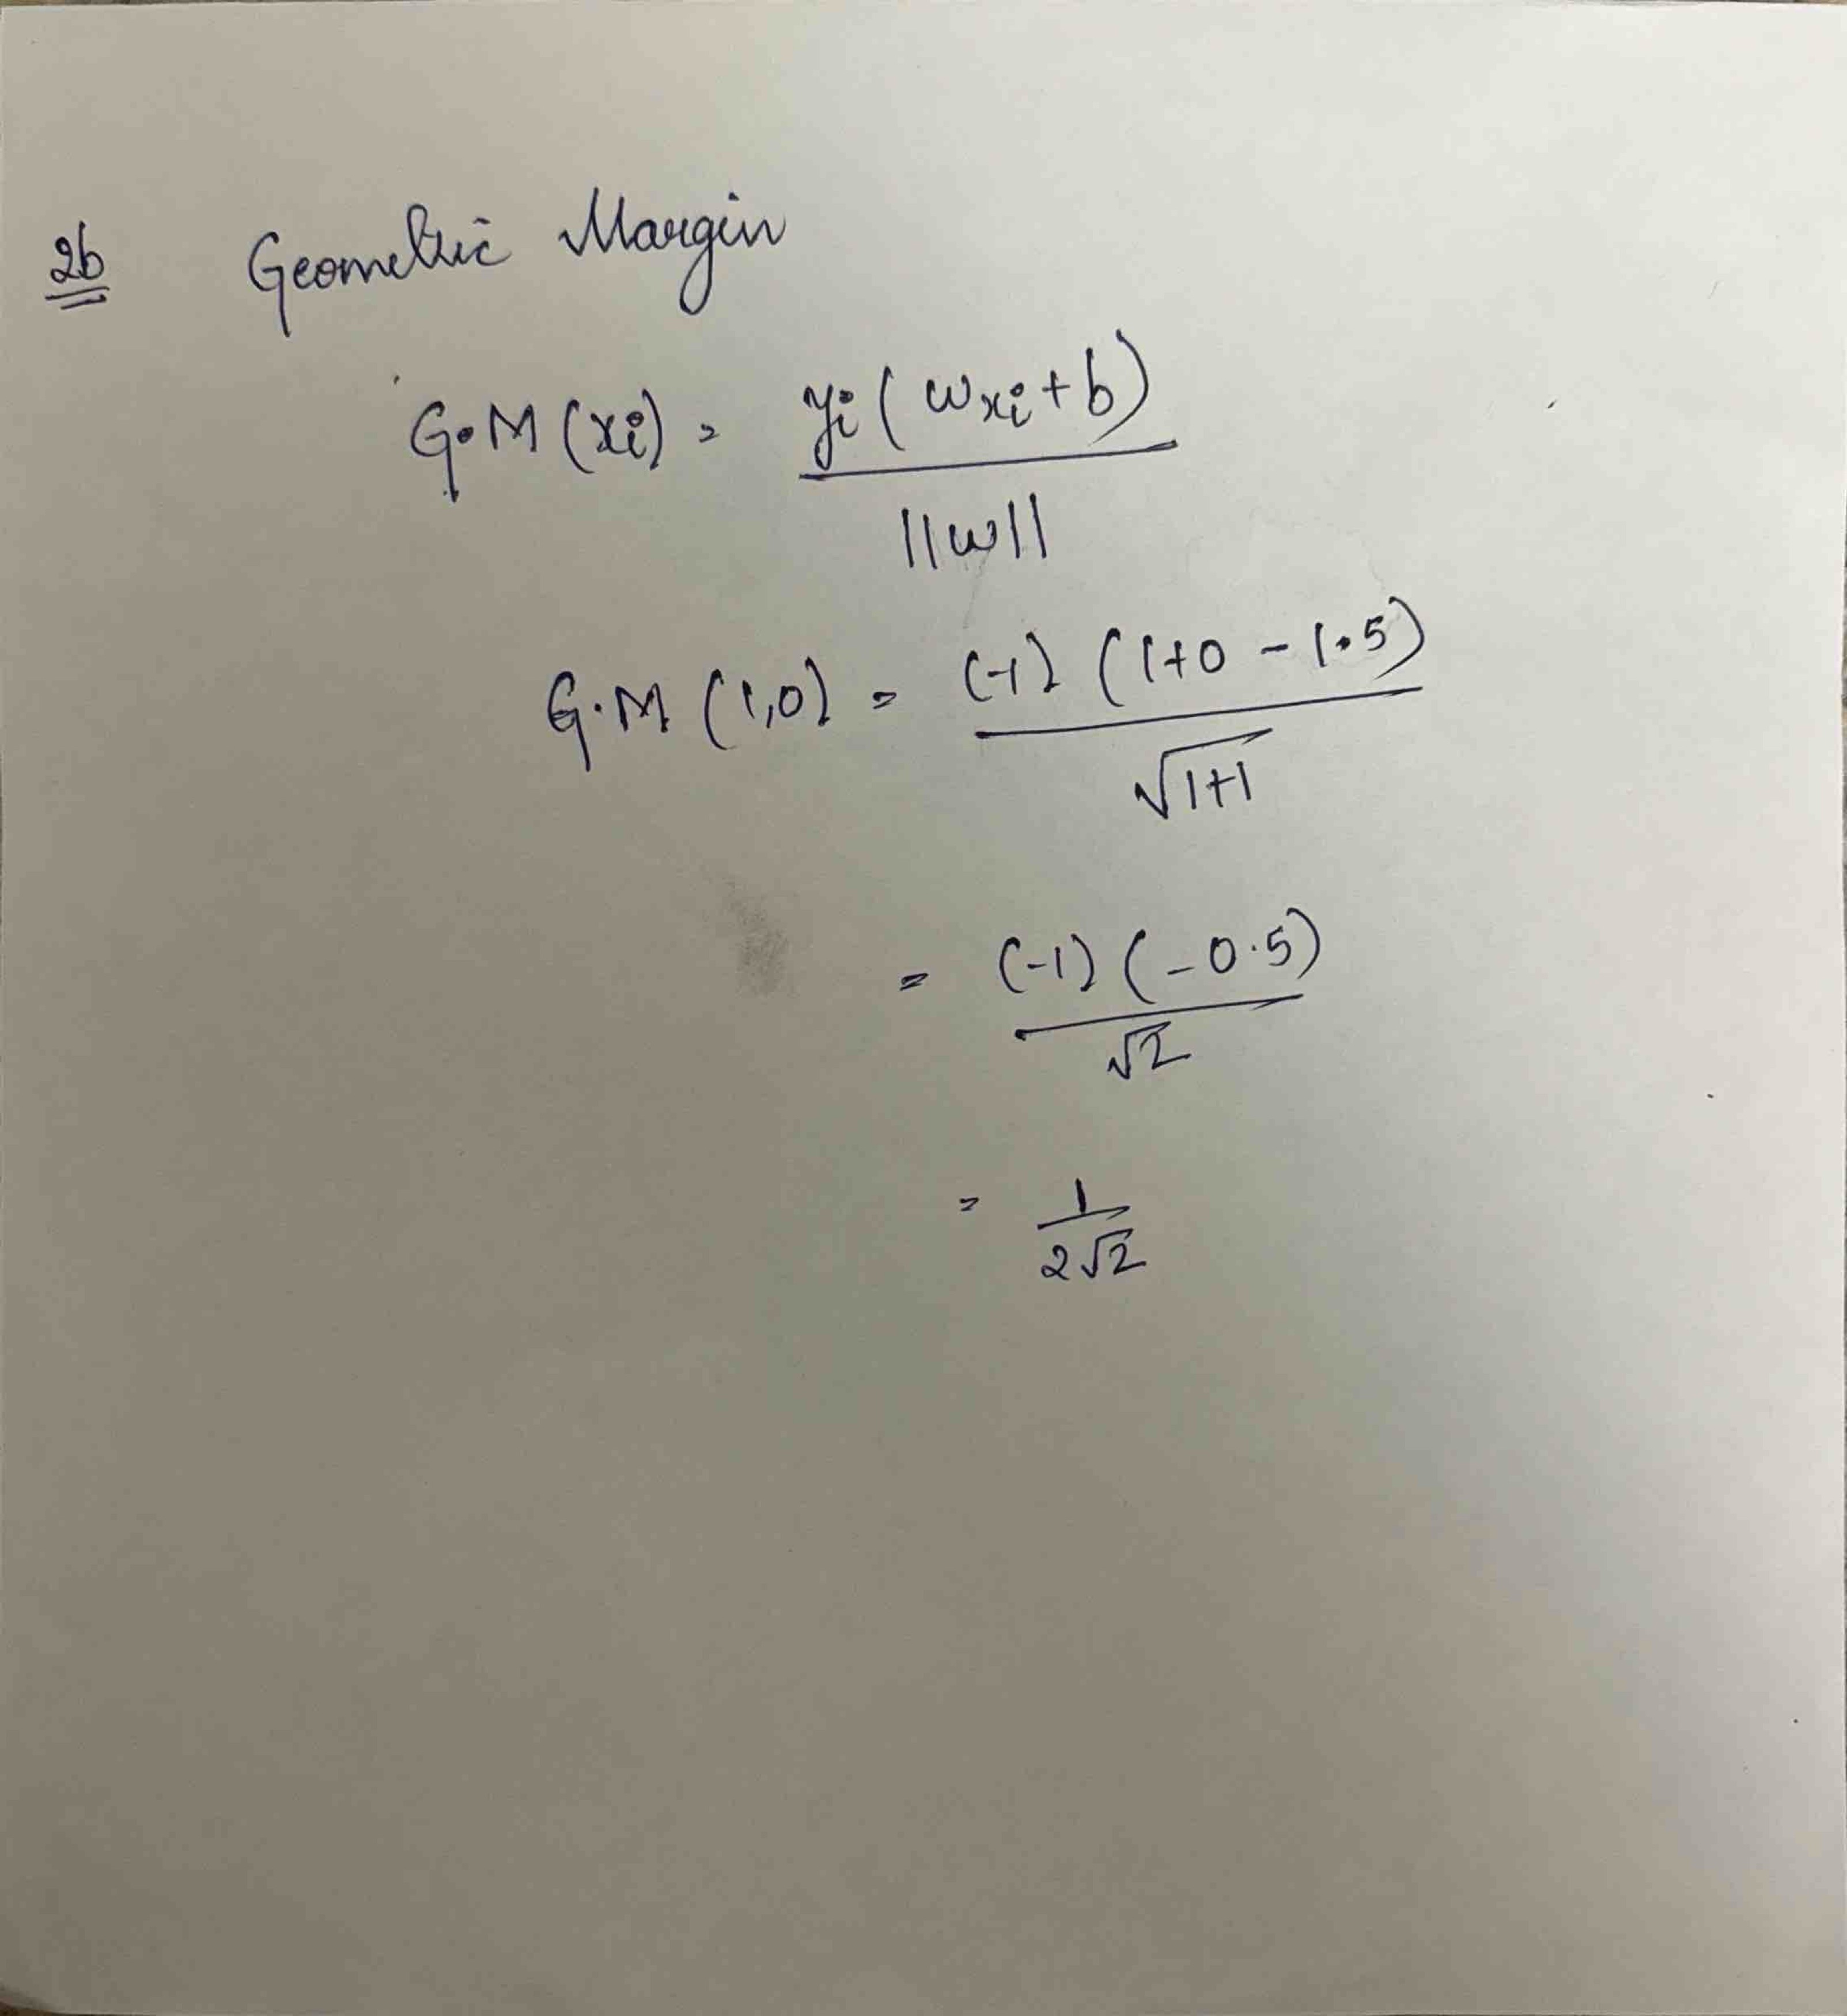 2b Geometric Margin
G.M (xi) = yi ( wxi + b) / ||w||
G.M (1,0) = (-1) (1+0 - 1.5) / √1+1
= (-1) (-0.5) / √2
= 1 / 2√2